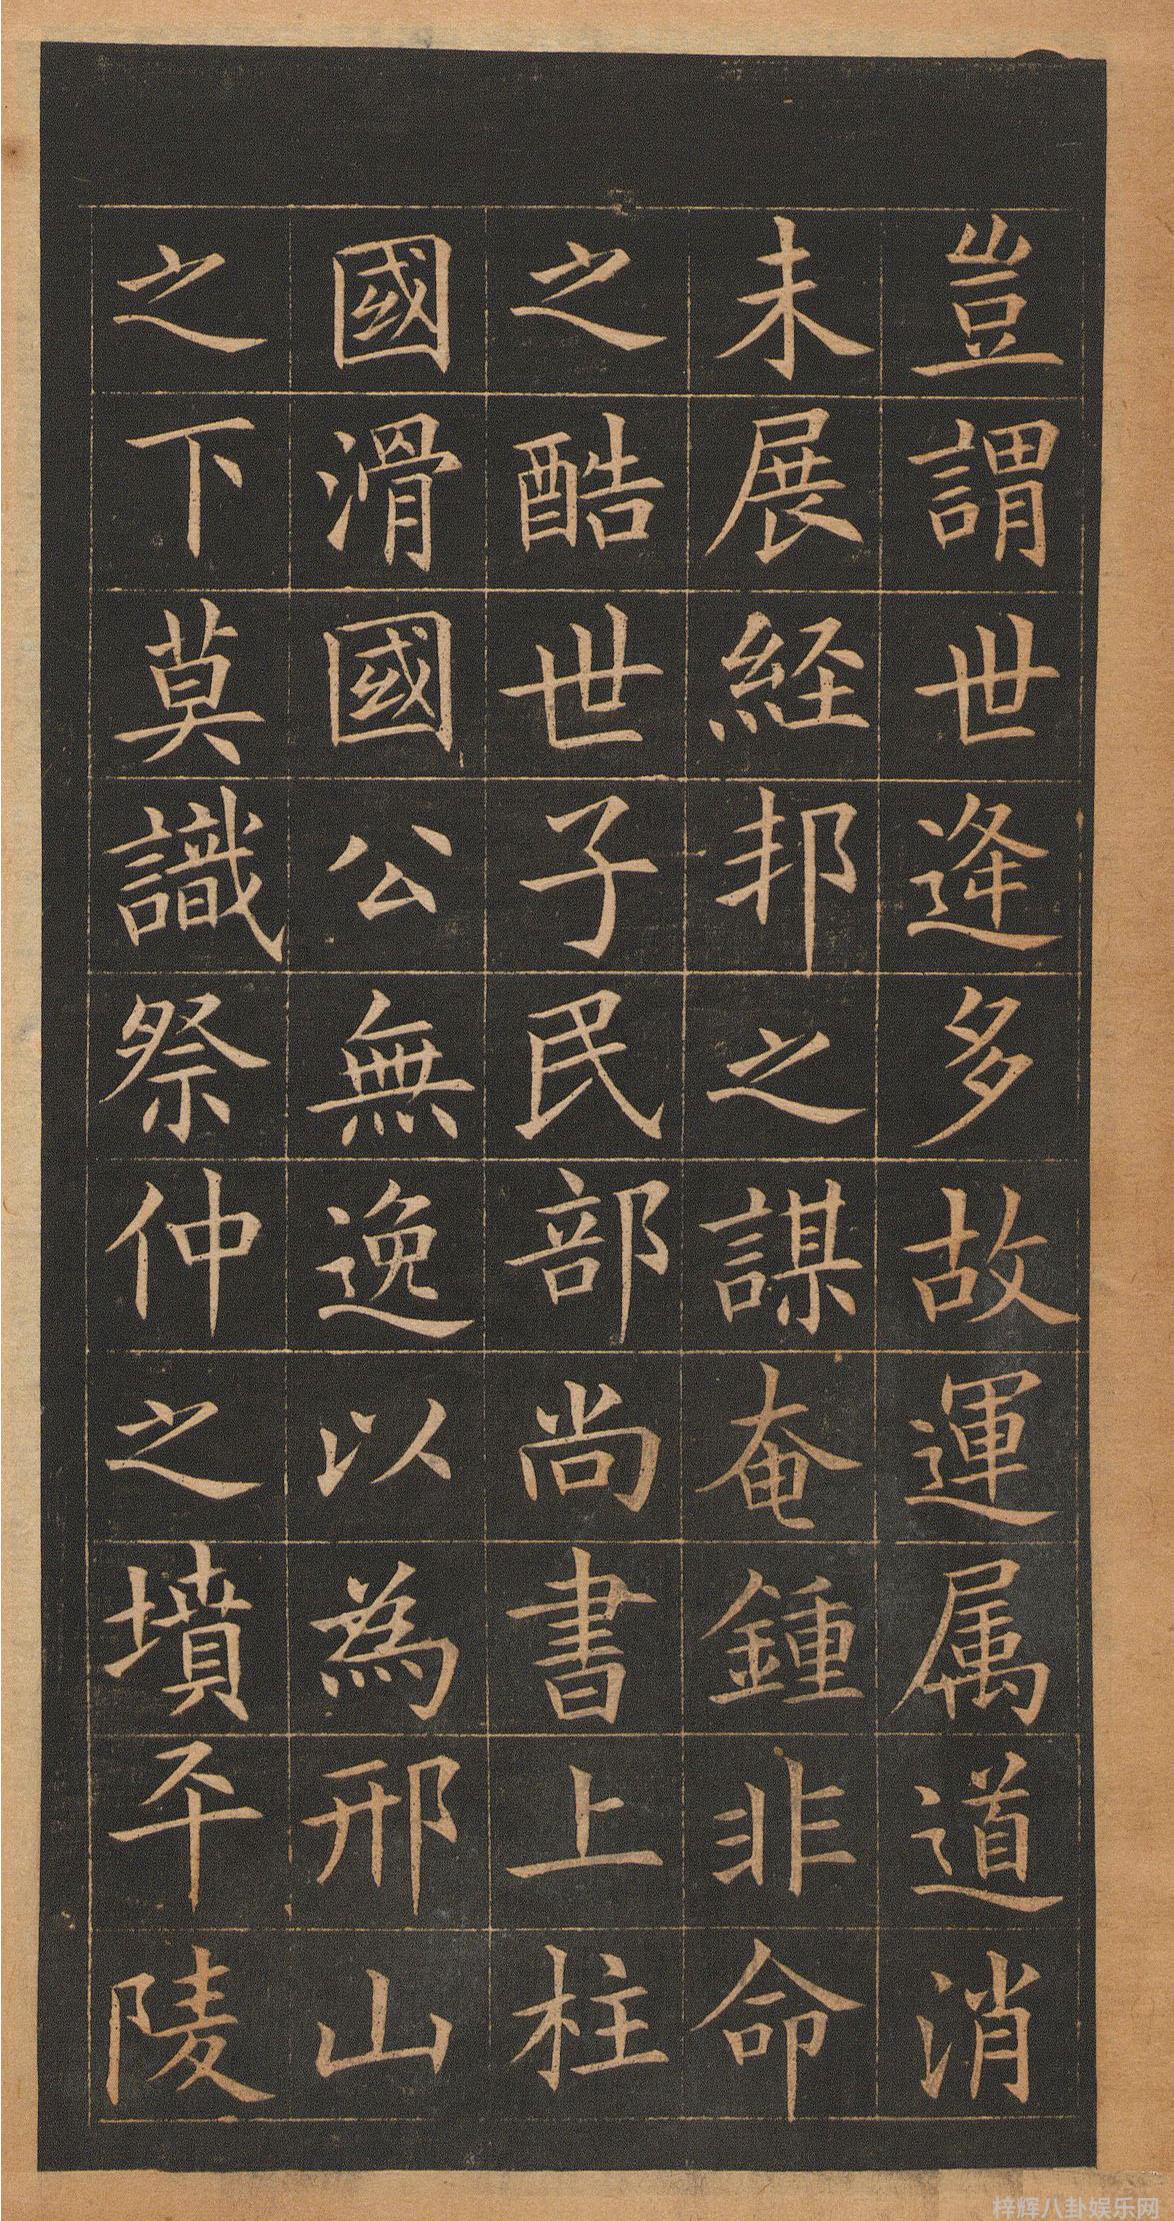 豈謂世逄多故運属道消
未展経邦之謀奄鍾非命
之酷世子民部尚書上柱
國滑國公無逸以為邢山
之下莫識祭仲之墳平陵
梓辉八卦娱乐网